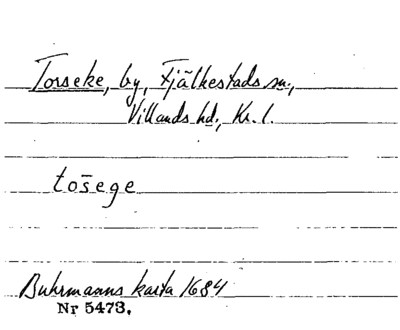 Torseke, by, Fjälkestads sn.,
Villands hd., Kr. l.
tos̄ege
Buhrmanns karta 1684
Nr 5473.